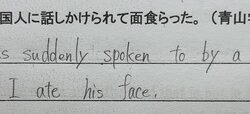 国人に話しかけられて面食らった。（青山学
s suddenly spoken to by a
I ate his face.